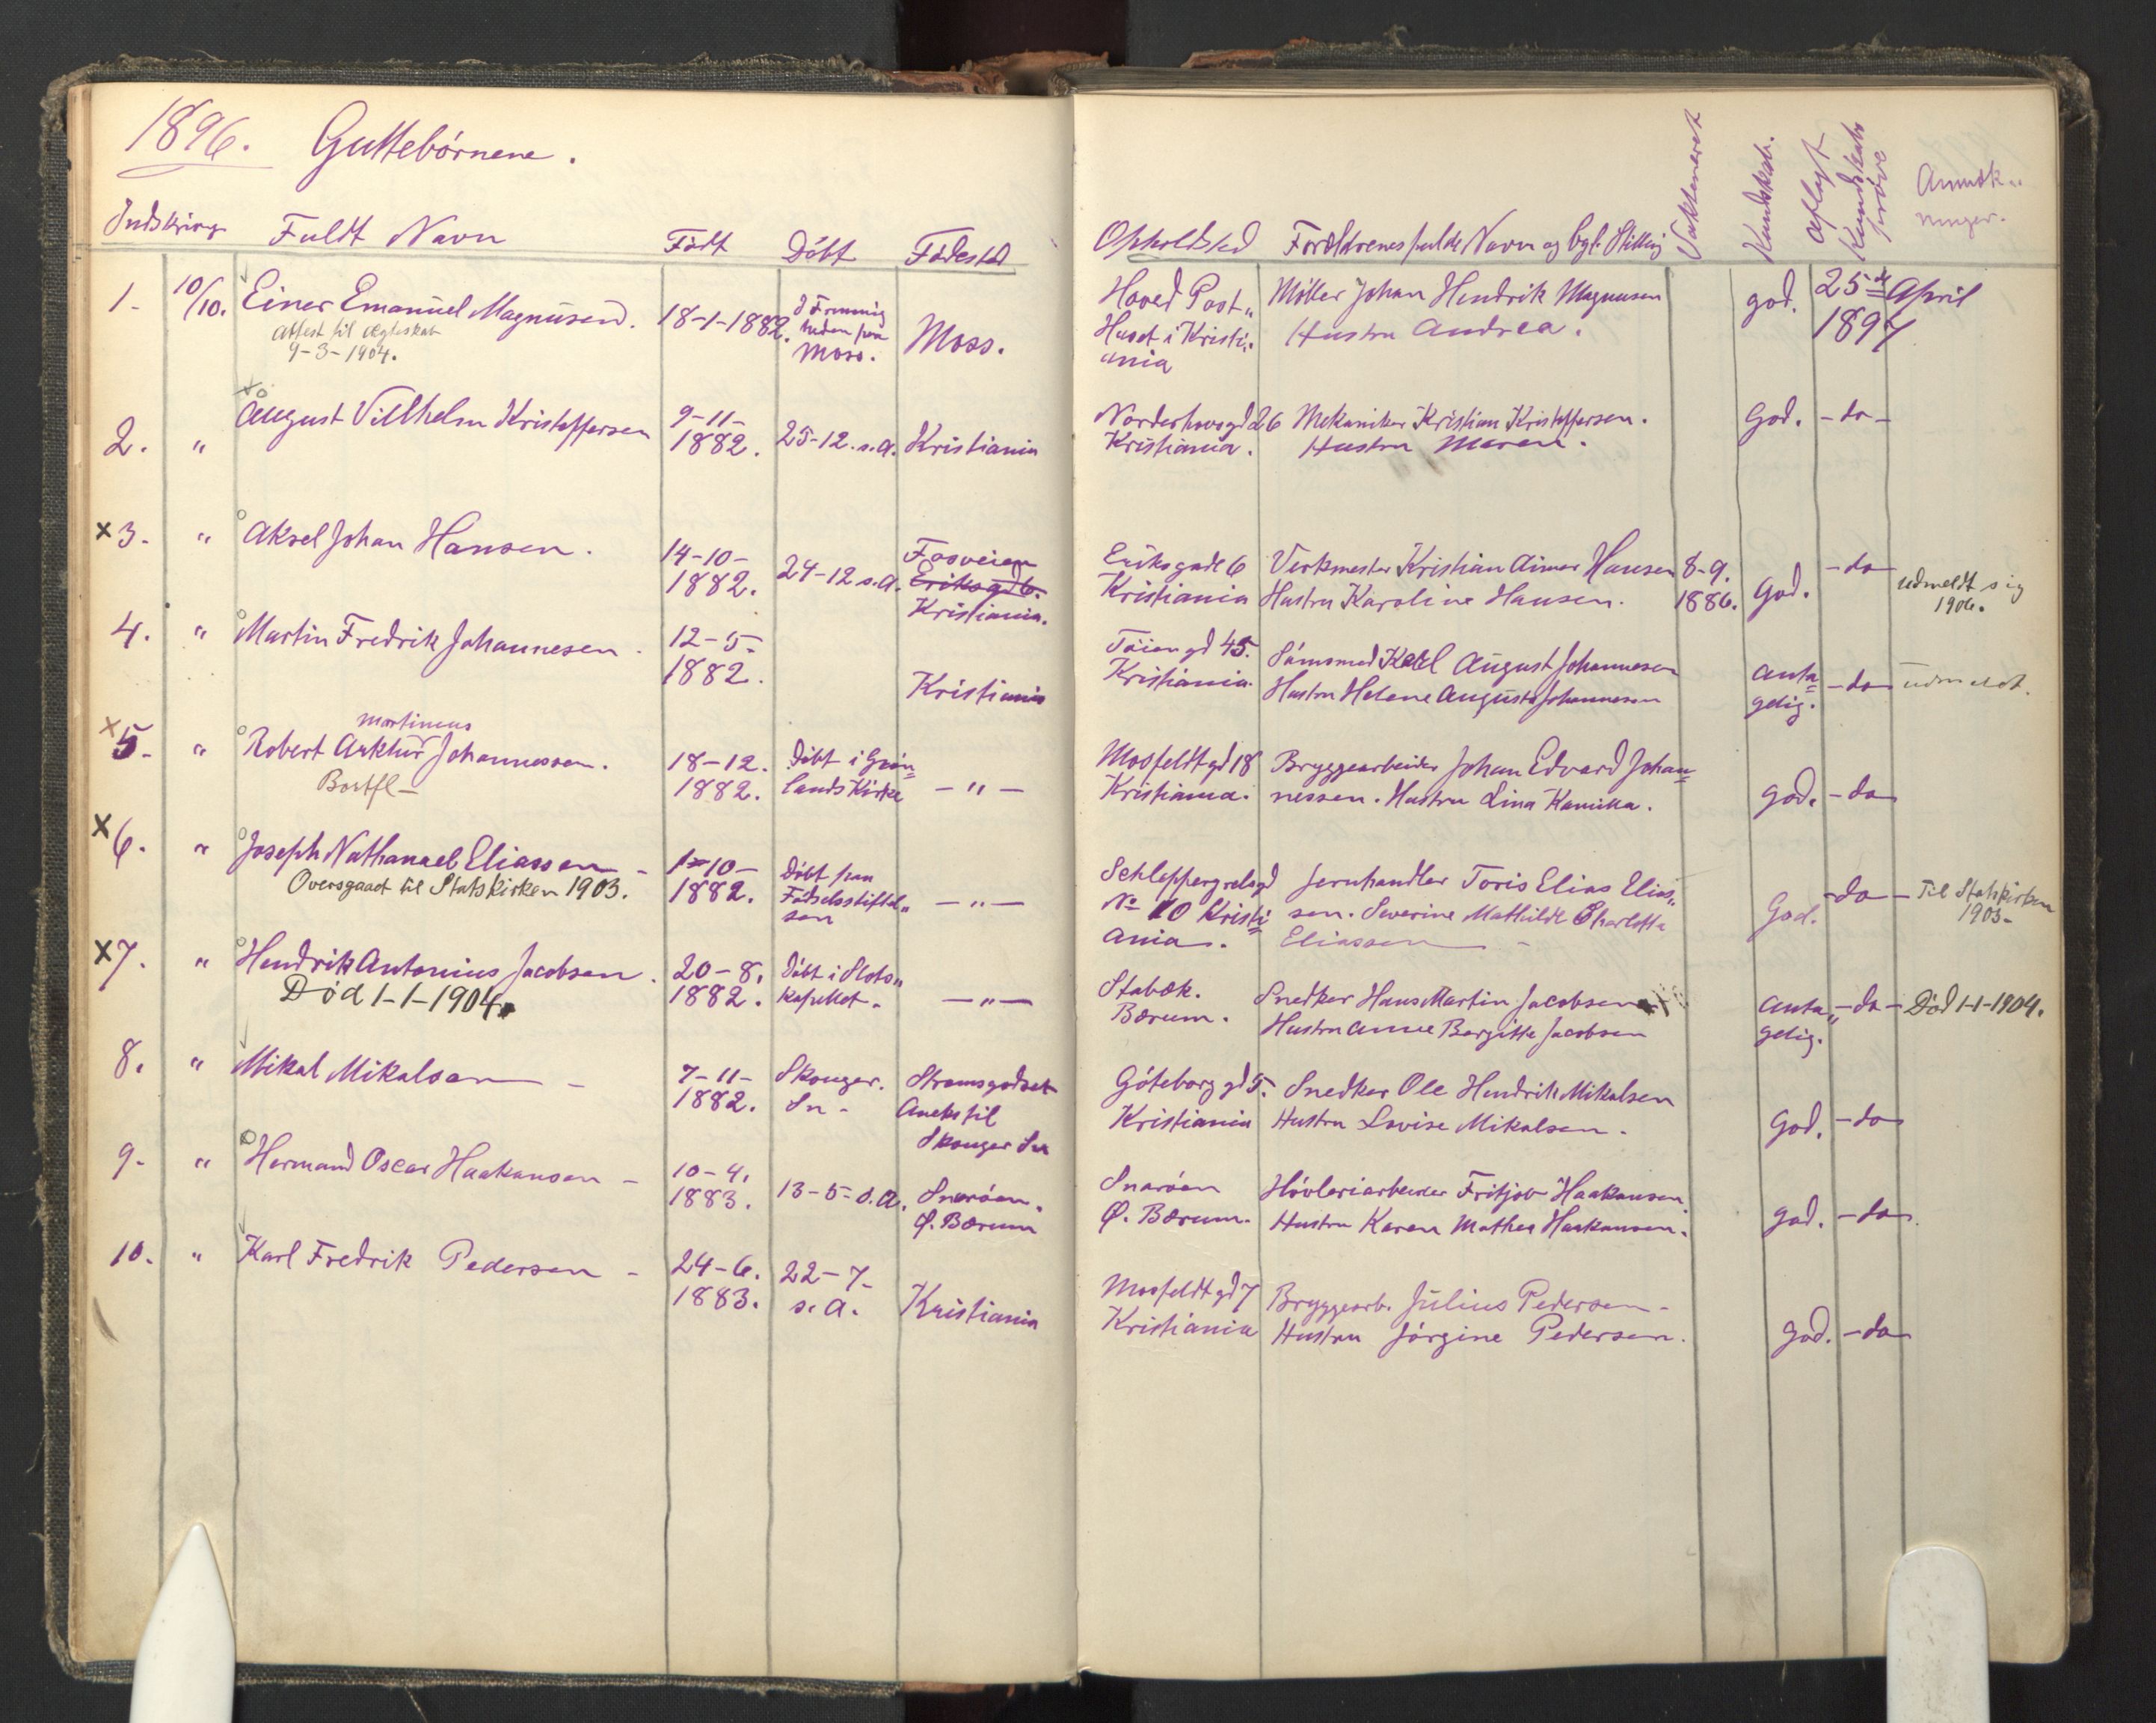 1896. Guttebörnene.
Indskriv. Fuldt Navn Födt Döbt Födested
Opholdsted Forældrenes fulde Navn og bgl. Stilling Vaktioneret Kundskab. Aflagt Kundskabs pröve Anmærkninger.
1. 10/10. Einer Emanuel Magnusen.
attest til ægteskab
9-3-1904.
18-1-1882.
paa
Moss.
Moss.
Hoved Post„
Huset i Kristi„
ania
Möller Johan Hendrik Magnusen
Hustru Andrea.
god.
25de April
1897
2. " August Villhelm Kristoffersen
9-11-
1882.
25-12. s.a.
Kristiania
Norderhovsgd 26
Kristiania.
Mekaniker Kristian Kristoffersen.
Hustru Maren.
God. -do-
x3. " Aksel Johan Hansen.
14-10-
1882.
24-12 s.a.
Fosveien
Eriksgd 6.
Kristiania.
Eriksgade 6
Kristiania
Verkmester Kristian Aimar Hansen
Hustru Karoline Hansen.
8-9.
1886.
God.
-do-
udmeldt sig
1906.
4. " Martin Fredrik Johannesen.
12-5-
1882.
Kristiania
Töiengd 45.
Kristiania.
Karl August Johannesen
Hustru Helene Augusta Johannesen
anta=
gelig.
-do- udmeldt.
x5. " Robert Arthur Johannessen.
Martineus
Bortfl-
18-12.
1882.
Döbt i Grön=
lands Kirke
- " -
Mosfeldtgd 18
Kristiania.
Bryggearbeider Johan Edvard Johan=
nessen. Hustru Lina Kamilla.
god. -do-
x6. " Joseph Nathanael Eliassen -
Overgaaet til Statskirken 1903.
1-10-
1882.
Döbt paa
Födselsstiftel„
sen
- " -
Schleppergrelsgd
No 10 Kristi=
ania.
Jernhandler Toris Elias Elias„
sen. Severine Mathilde Charlotta
Eliassen -
God.
-do- Til Statskirken
1903-
x7. " Hendrik Antonius Jacobsen.
Död 1-1-1904.
20-8.
1882.
Döbt i Slots„
kapellet.
- " -
Stabæk.
Bærum.
Snedker Hans Martin Jacobsen
Hustru Anne Bergitte Jacobsen
anta„
gelig.
-do- Död 1-1-1904.
8. " Mikal Mikalsen -
7-11-
1882.
Skouger.
Sn-
Stromsgodset
Aneks til
Skouger Sn
Göteborggd 5.
Kristiania
Snedker Ole Hendrik Mikalsen
Hustru Lovise Mikalsen.
God. -do-
9. " Hermand Oscar Haakansen -
10-4.
1883.
13-5-s.a.
Snaröen.
Ø. Bærum
Snaröen
Ø. Bærum.
Hövleriarbeider Fritjov Haakansen.
Hustru Karen Mathea Haakansen.
god. -do-
10. " Karl Fredrik Pedersen -
24-6.
1883.
22-7-
s.a.
Kristiania
Mosfeldtgd 7
Kristiania
Bryggearb. Julius Pedersen -
Hustru Jörgine Pedersen.
god. -do-